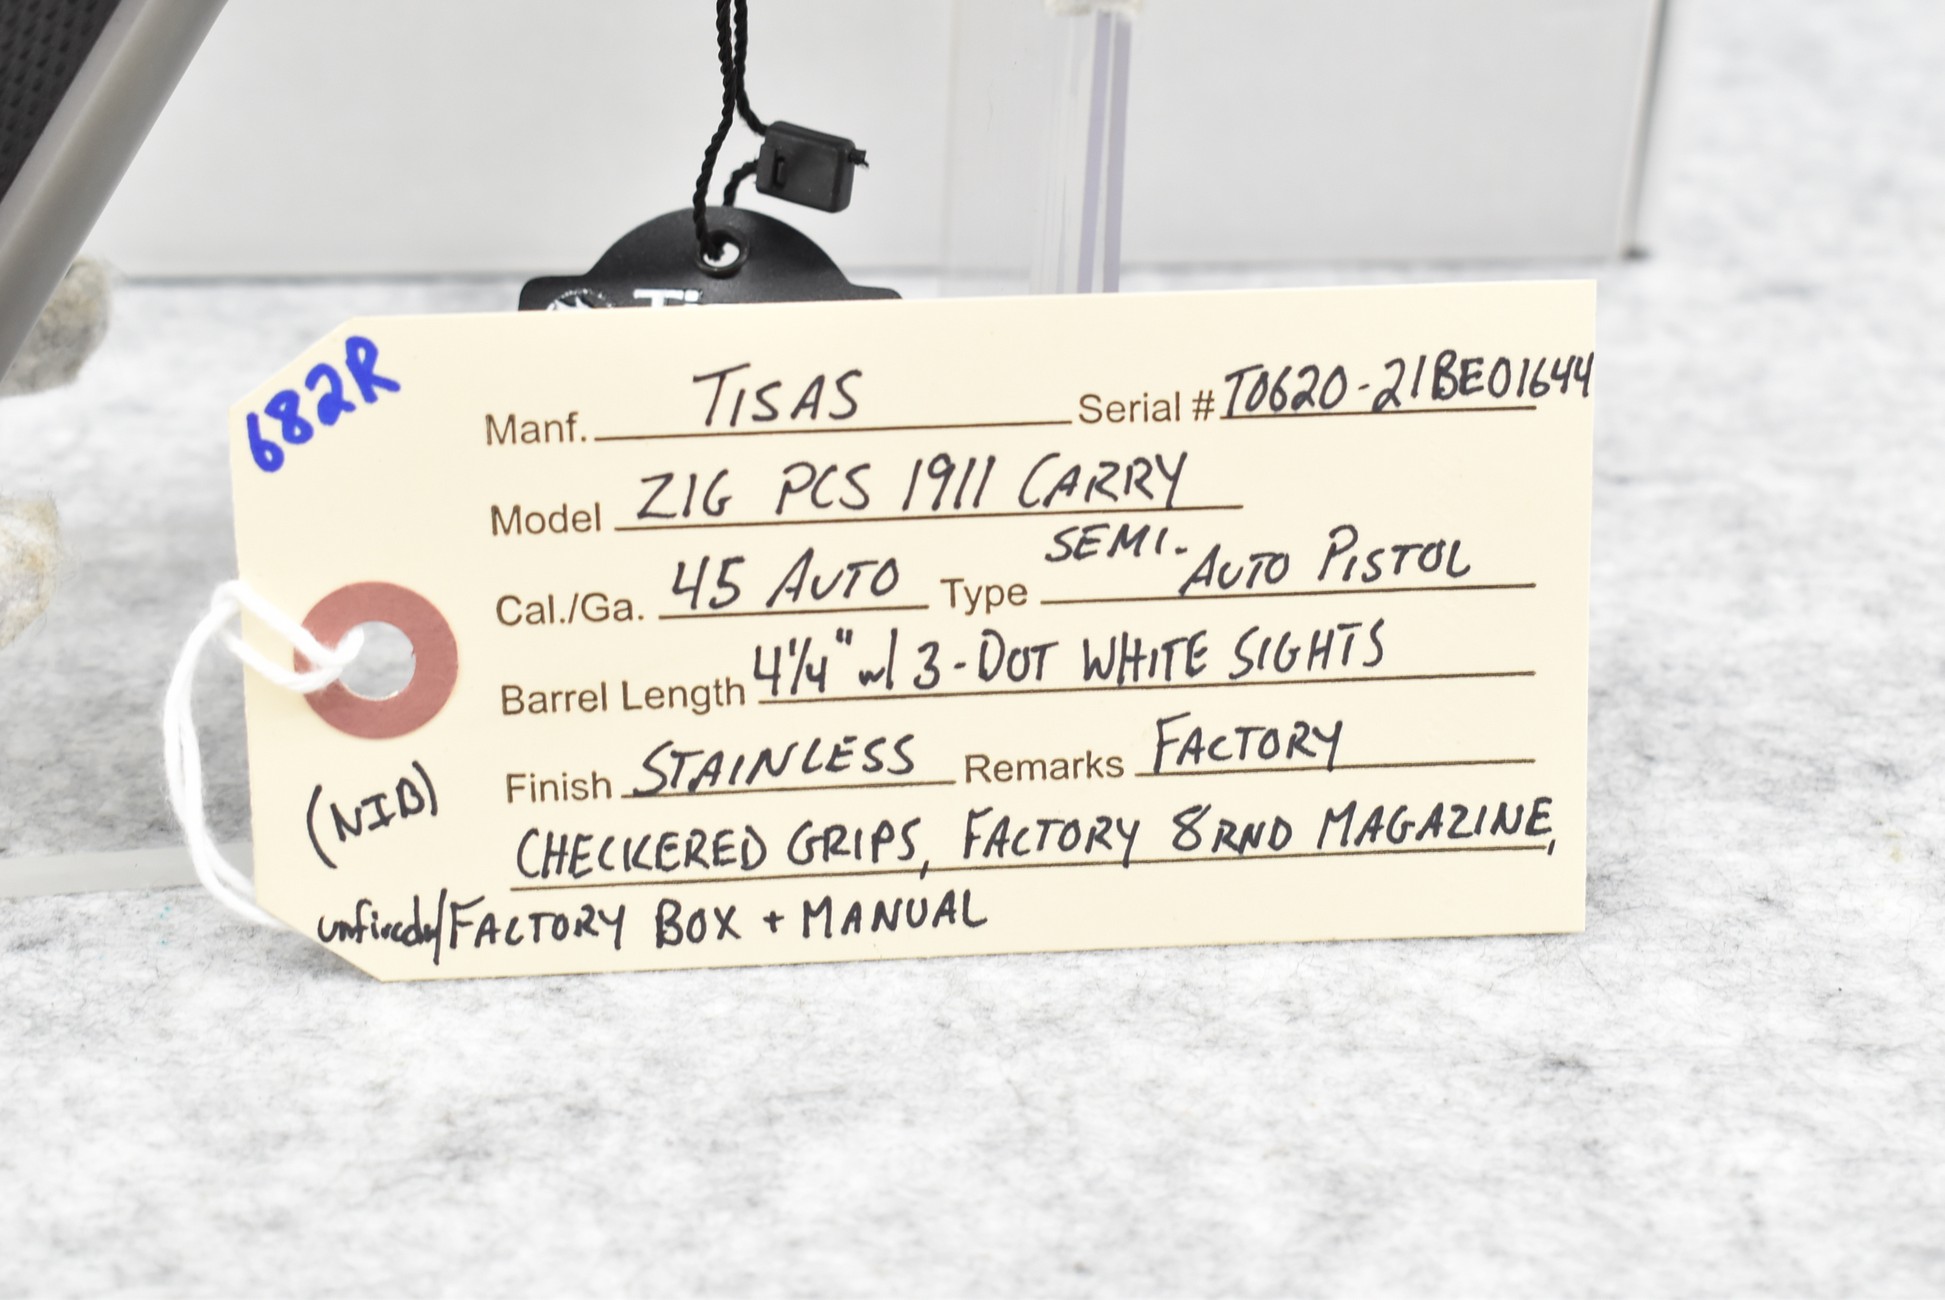 Ti
682R
Manf. TISAS Serial # T0620-21BE01644
Model ZIG PCS 1911 CARRY
Cal./Ga. 45 AUTO Type SEMI- AUTO PISTOL
Barrel Length 4 1/4" w/ 3-DOT WHITE SIGHTS
Finish STAINLESS Remarks FACTORY
(NIB)
CHECKERED GRIPS, FACTORY 8RND MAGAZINE,
unfired w/ FACTORY BOX + MANUAL